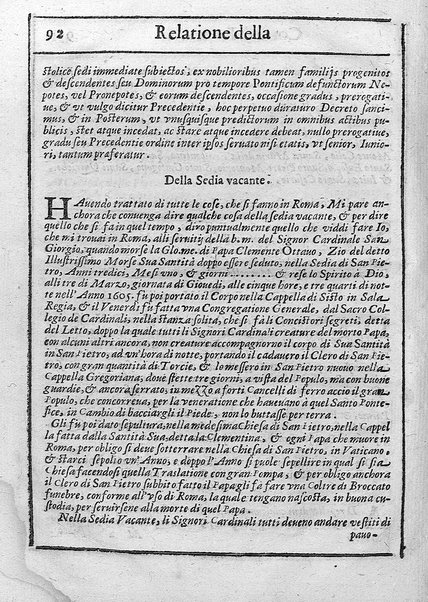 92 Relatione della
stolice sedi immediate subiectos, ex nobilioribus tamen familijs progenitos
& descendentes seu Dominorum pro tempore Pontificum defunctorum Ne-
potes, vel Pronepotes, & eorum descendentes, occasione gradus, prerogati-
uę, & vt vulgo dicitur Precedentie, hoc perpetuo duraturo Decreto sanci-
mus, & in Posterum, vt vnusquisque predictorum in omnibus actibus pu-
blicis, stet atque incedat, ac stare atque incedere debeat, nullo prerogatiue,
gradu seu Precedentie ordine inter ipsos seruato nisi etatis, vt senior, Iunio-
ri, tantum praeferatur.
Della Sedia vacante.
HAuendo trattato di tutte le cose, che si fanno in Roma, Mi pare an-
chora che conuenga dire qualche cosa della sedia vacante, & per dire
quello che si fà in quel tempo, dirò puntualmente quello che viddi fare Io,
che mi trouai in Roma, alli seruitij della b.m. del Signor Cardinale San
Giorgio, quando morse la Glo.me. di Papa Clemente Ottauo, Zio del detto
Illustrissimo Morse Sua Santità doppo essere seduto, nella Sedia di San Pie-
tro, Anni tredici, Mesi vno, & giorni ......... & rese lo Spirito à Dio,
alli tre di Marzo, giornata di Giouedi, alle cinque hore, e tre quarti di not-
te nell'Anno 1605. fu poi portato il Corpo nella Cappella di Sisto in Sala
Regia, & il Venerdi fu fatta vna Congregatione Generale, dal Sacro Col-
legio de Cardinali, nella stanza solita, che si fà li Concistori segreti, detta
del Letto, doppo la quale tutti li Signori Cardinali creature del morto Papa,
con alcuni altri ancora, non creature accompagnorno il corpo di Sua Santità
in San Pietro, ad vn'hora di notte, portando il cadauero il Clero di San Pie-
tro, con gran quantità di Torcie, & lo messero in San Pietro nuouo nella
Cappella Gregoriana, doue stette tre giorni, a vista del Populo, ma con buone
guardie, & ancora serrato, in mezzo a forti Cancelli di ferro accio il gran
Populo, che concorreua, per la veneratione che haueuano à quel Santo Ponte-
fice, in Cambio di bacciargli il Piede, non lo buttasse per terra.
Gli fu poi dato sepoltura, nella medesima Chiesa di San Pietro, nella Cappel
la fatta dalla Santità Sua, detta la Clementina, & ogni Papa che muore in
Roma, per obligo si deue sotterrare nella Chiesa di San Pietro, in Vaticano,
& starci sepolto vn'Anno, e doppo l'Anno si puole sepellire in qual si sia
Chiesa facendosi quella Traslatione con gran Pompa, & per obligo anchora
il Clero di San Pietro subbito fatto il Papa gli fà fare vna Coltre di Broccato
funebre, conforme all'vso di Roma, la quale tengano nascosta, in buona cu-
stodia, per seruirsene alla morte di quel Papa.
Nella Sedia Vacante, li Signori Cardinali tutti deueno andare vestiti di
pauo-